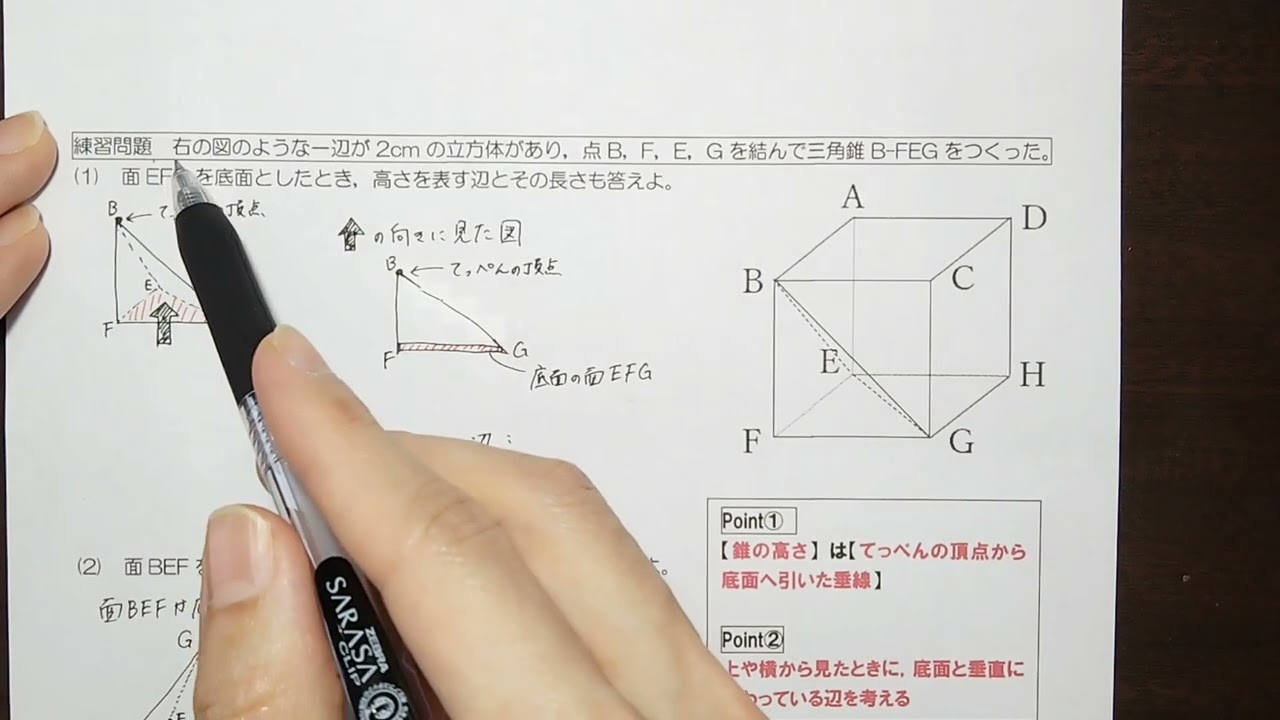 練習問題 右の図のような一辺が 2cm の立方体があり，点 B，F，E，G を結んで三角錐 B-FEG をつくった。
(1) 面 EF を底面としたとき，高さを表す辺とその長さも答えよ。
B
頂点
E
F
の向きに見た図
B
てっぺんの頂点
F
G
底面の面EFG
辺
A
D
B
C
E
H
F
G
(2) 面 BEF
。
面BEFは
G
E
Point①
【錐の高さ】は【てっぺんの頂点から
底面へ引いた垂線】
Point②
上や横から見たときに，底面と垂直に
わっている辺を考える
ZEBRA
SARASA
CLIP